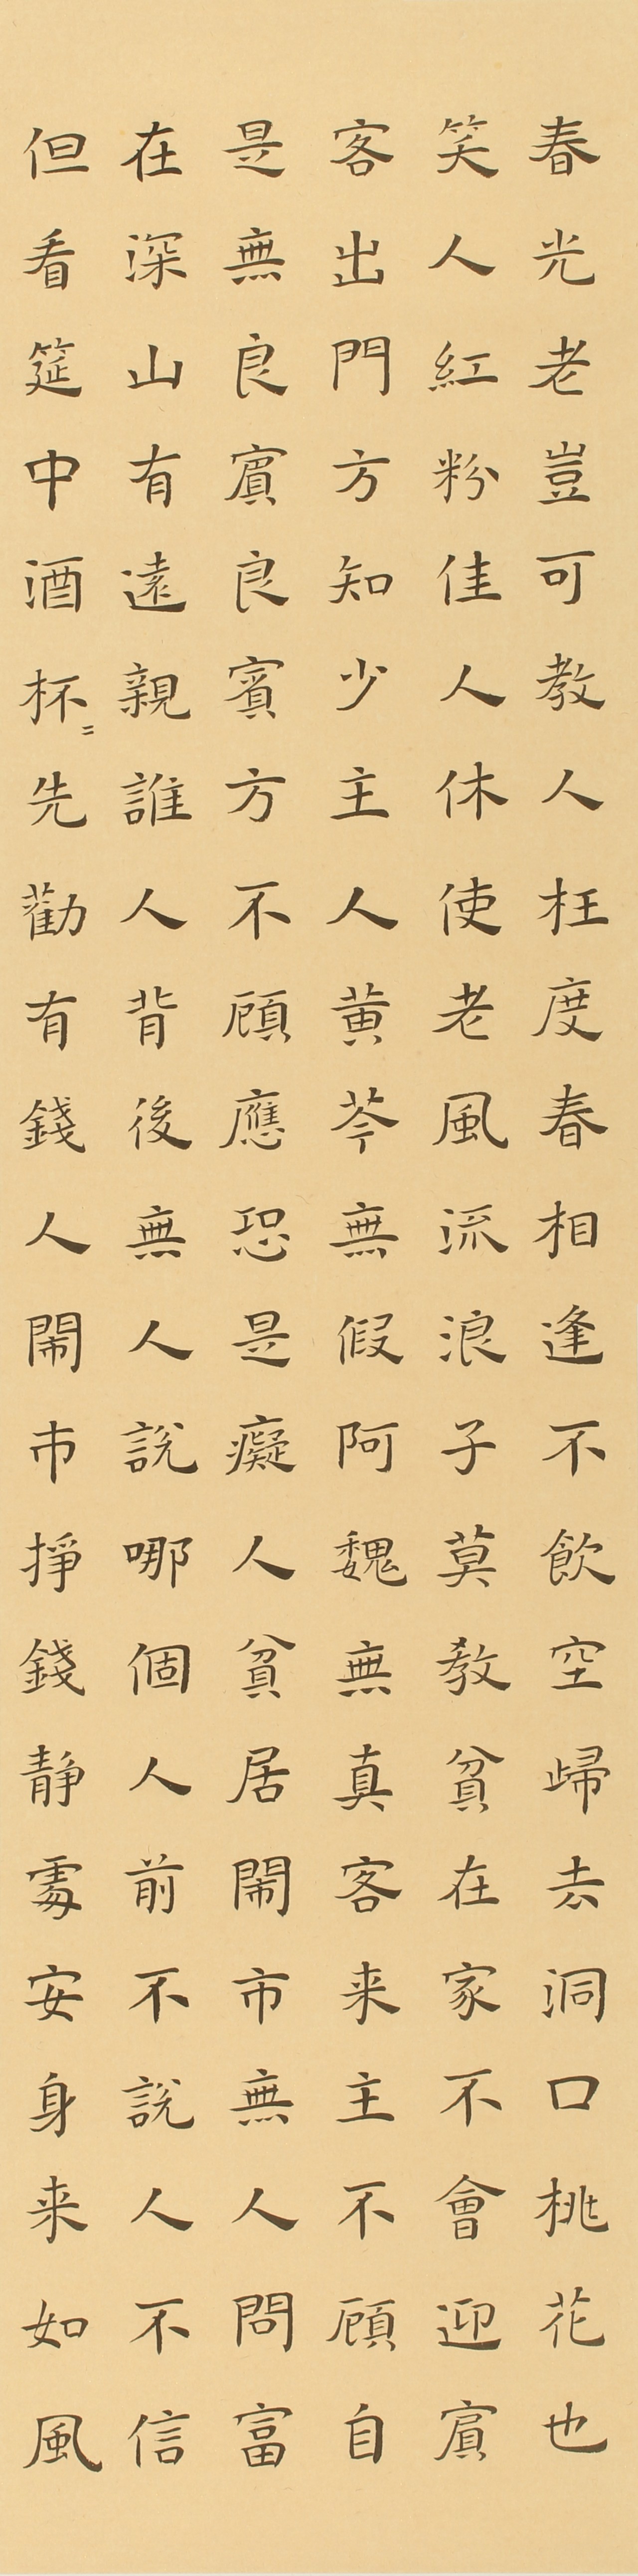 春光老豈可教人枉度春相逢不飲空歸去洞口桃花也
笑人紅粉佳人休使老風流浪子莫教貧在家不會迎賔
客出門方知少主人黄芩無假阿魏無真客来主不顧自
是無良賔良賓方不顧應恐是癡人貧居鬧市無人問富
在深山有遠親誰人背後無人說哪個人前不說人不信
但看筵中酒杯〻先勸有錢人鬧市掙錢静處安身来如風